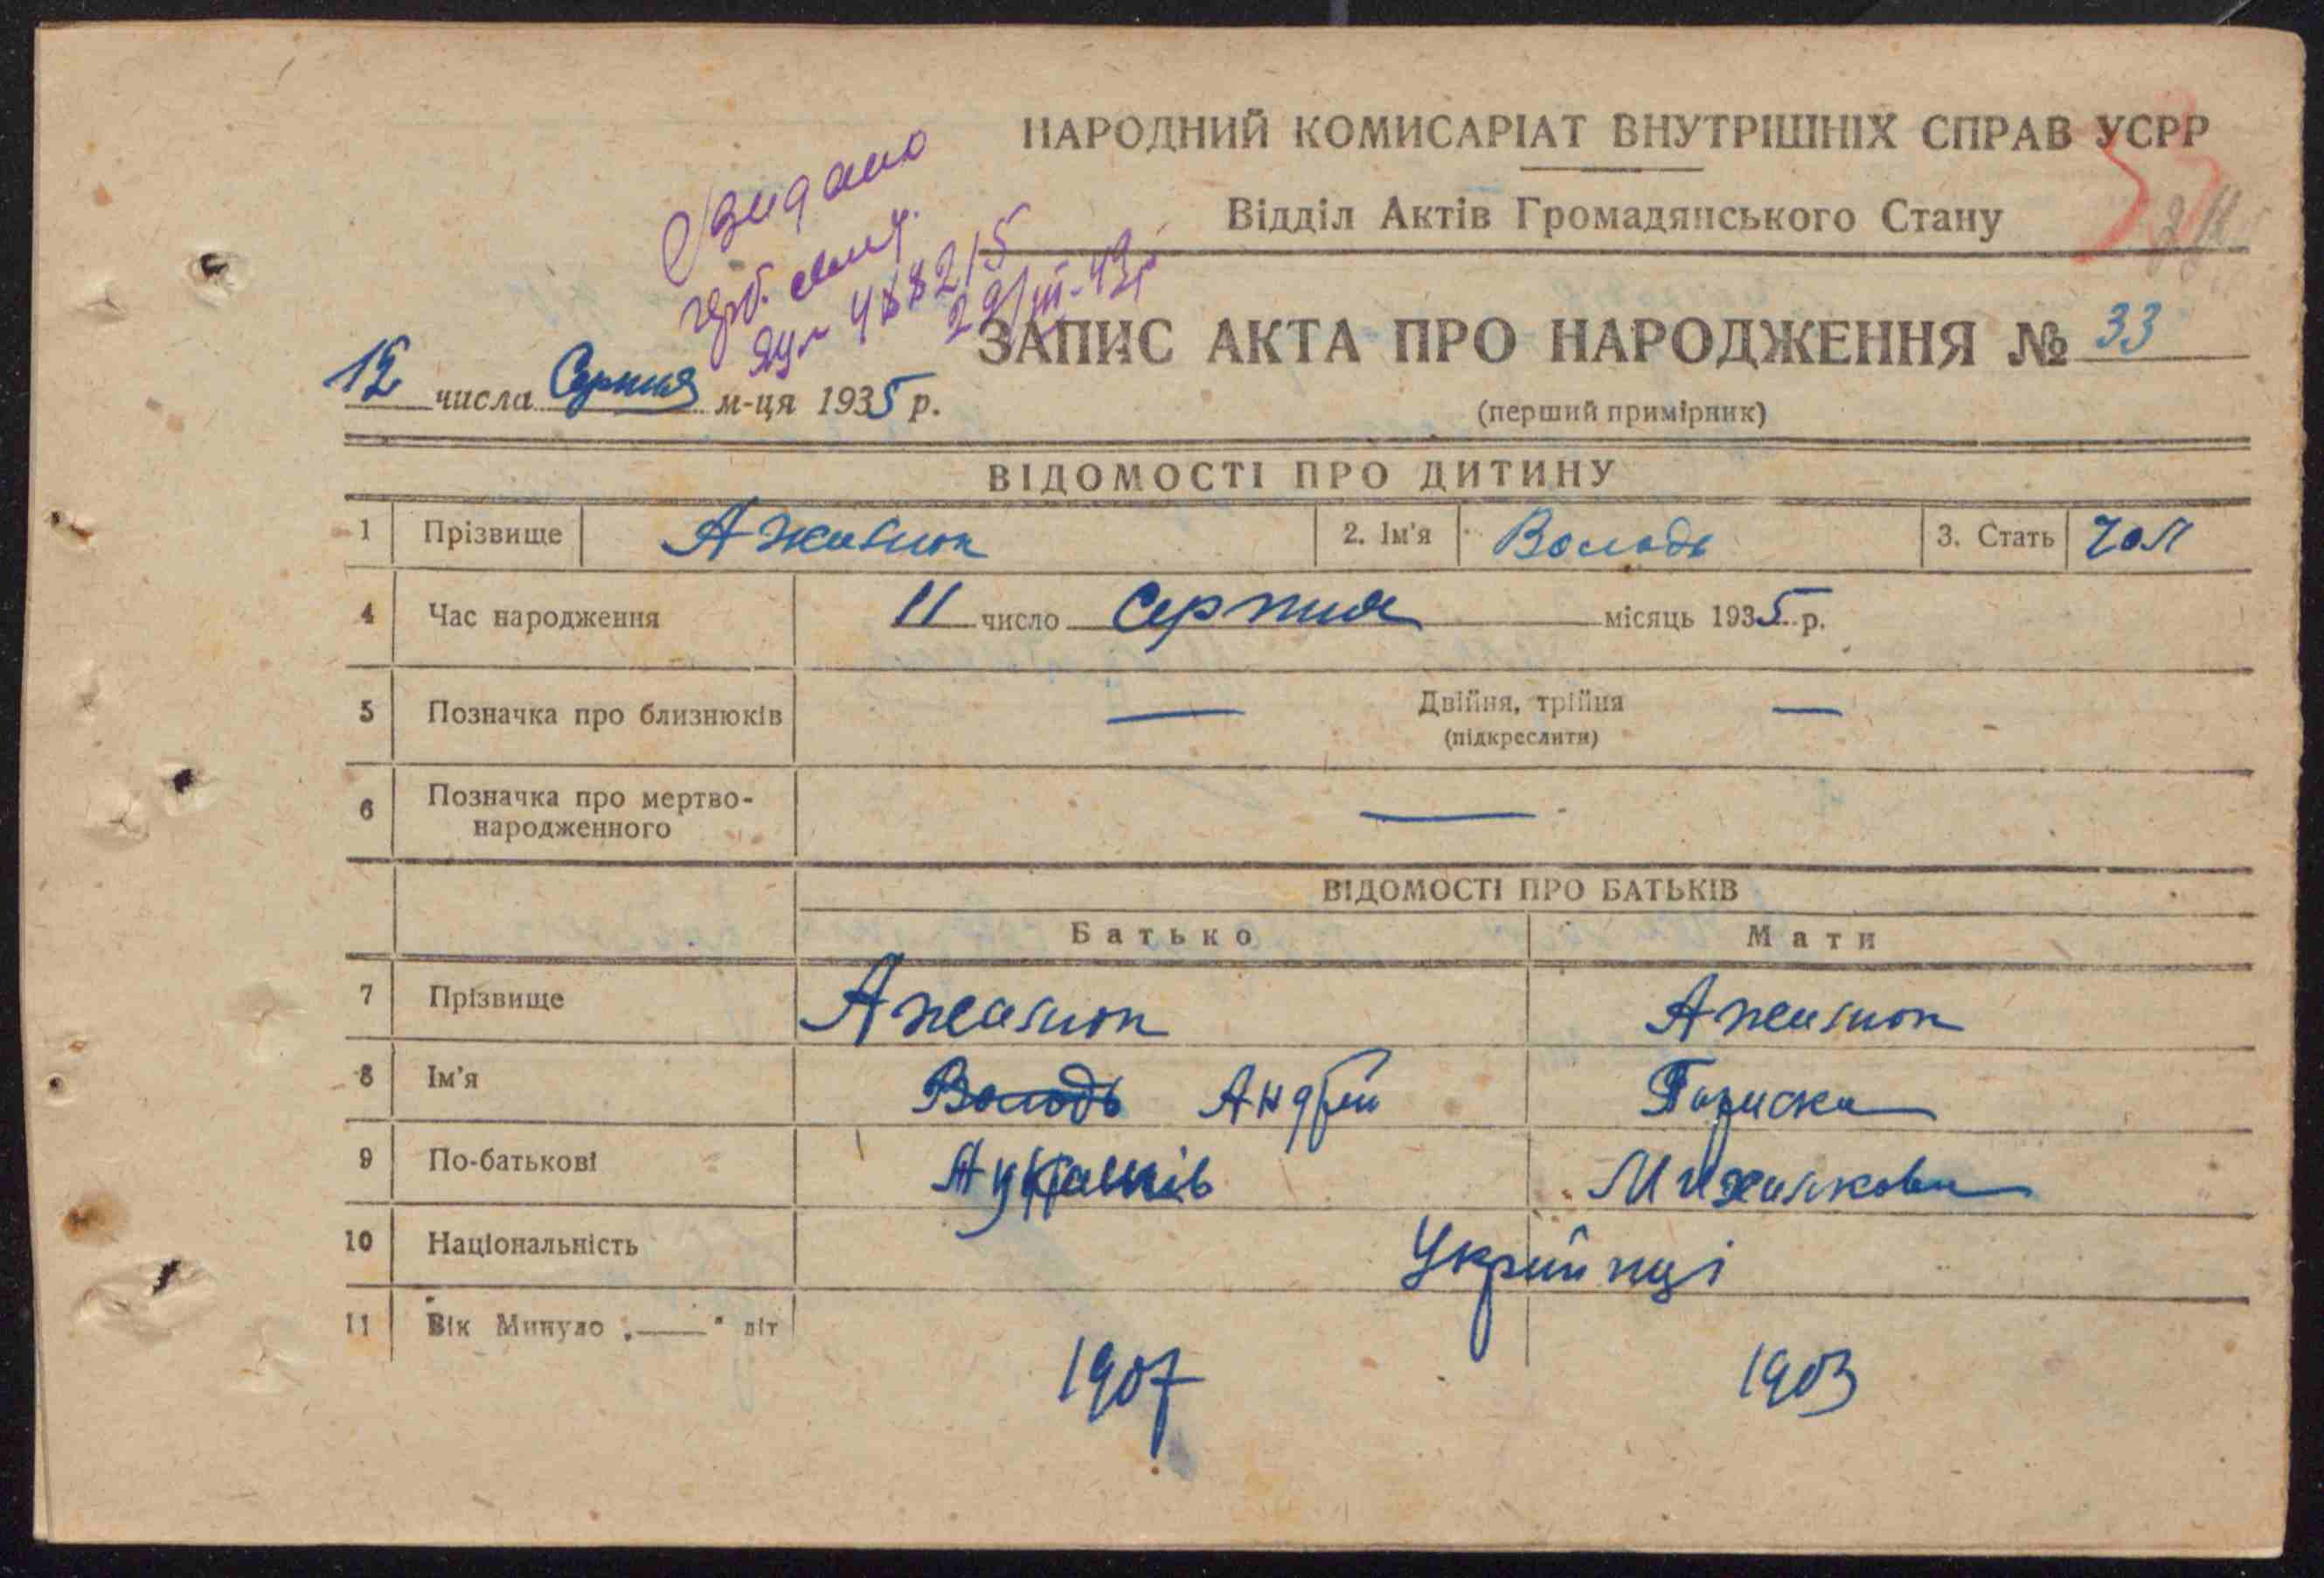 НАРОДНИЙ КОМИСАРІАТ ВНУТРІШНІХ СПРАВ УСРР
Відділ Актів Громадянського Стану
Видано
29/III-43р
ЗАПИС АКТА ПРО НАРОДЖЕННЯ № 33
12 числа Серпня м-ця 1935 р.
(перший примірник)
ВІДОМОСТІ ПРО ДИТИНУ
1 Прізвище Ажажок 2. Ім'я Володь 3. Стать чол
4 Час народження 11 число Серпня місяць 1935 р.
5 Позначка про близнюків — Двійня, трійня —
(підкреслити)
6 Позначка про мертво-
народженного —
ВІДОМОСТІ ПРО БАТЬКІВ
Батько Мати
7 Прізвище
8 Ім'я Володь Андрій Параска
9 По-батькові Лукашів
10 Національність Украйнці
11 Вік Минуло „—" літ
1907 1903